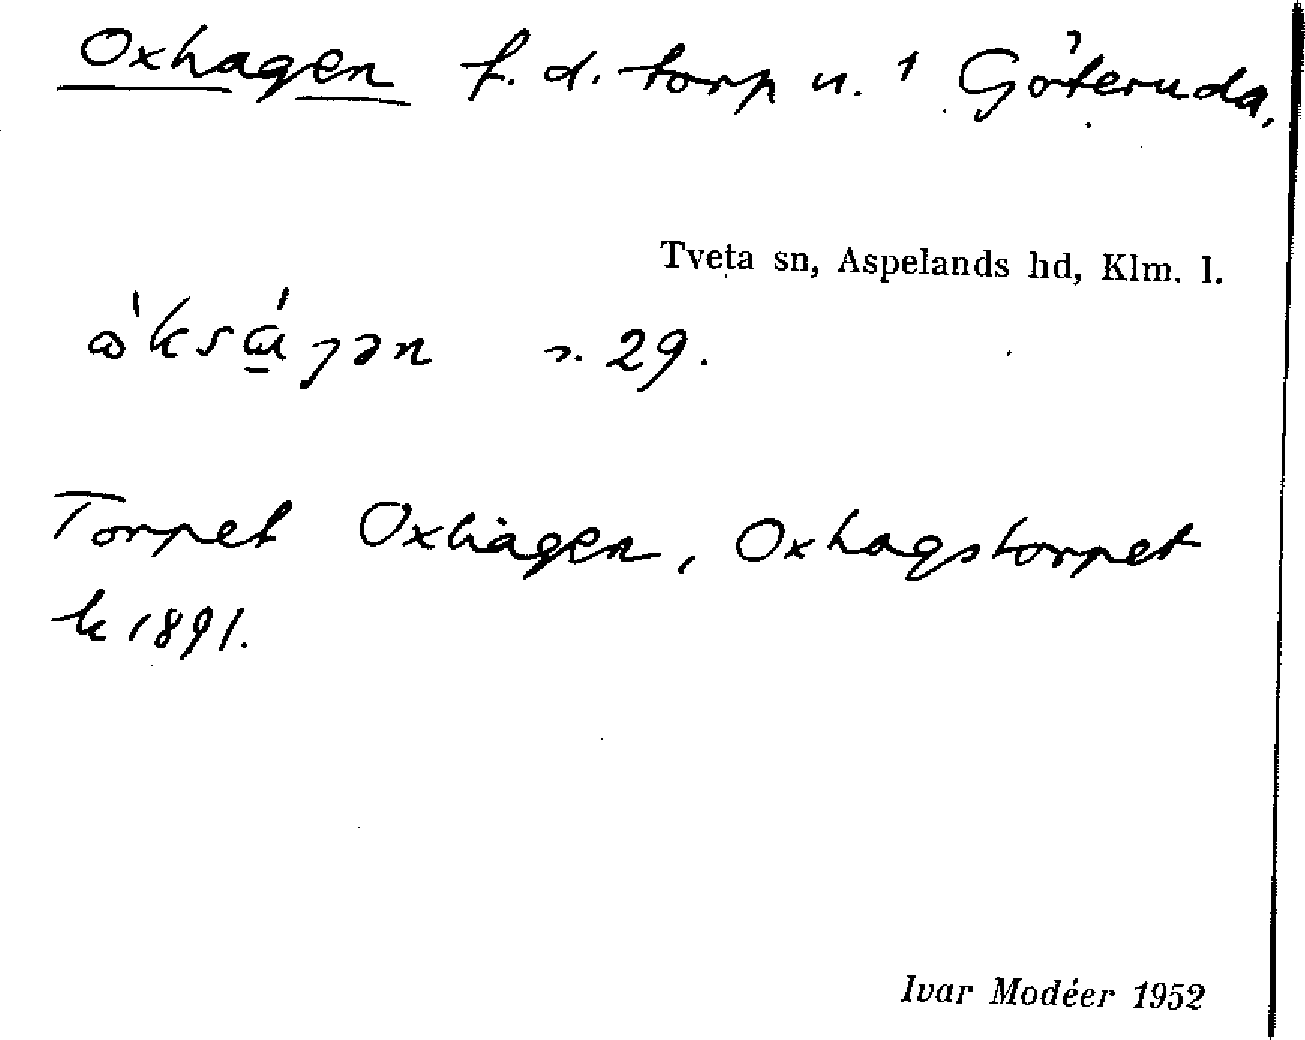 Oxhagen f. d. torp u. 1 Göteruda,
Tveta sn, Aspelands hd, Klm. l.
29.
Torpet Oxhagen, Oxhagstorpet
k 1891.
Ivar Modéer 1952